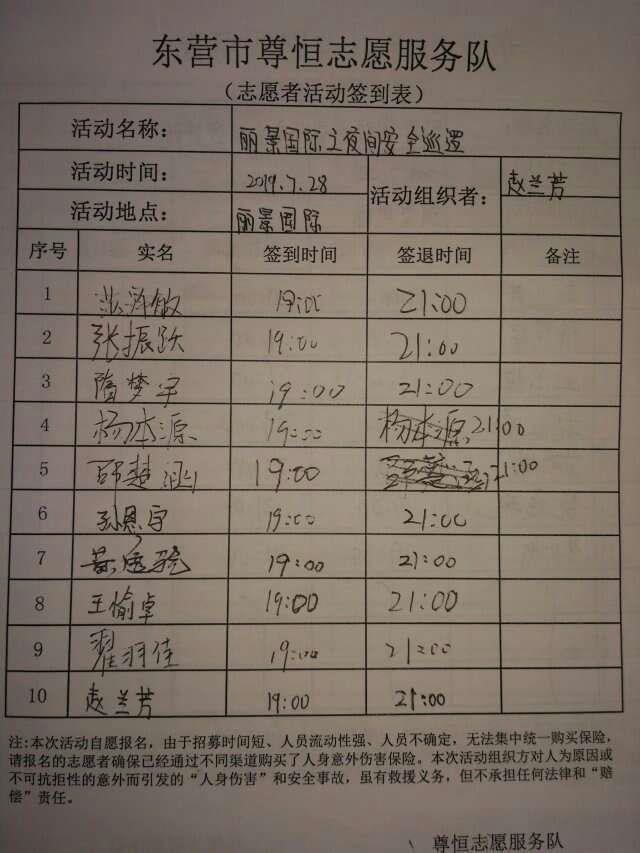 东营市尊恒志愿服务队
（志愿者活动签到表）
活动名称： 丽景国际之夜间安全巡逻
活动时间： 2019.7.28 活动组织者： 赵兰芳
活动地点： 丽景国际
序号 实名 签到时间 签退时间 备注
1 张泽敏 19:00 21:00
2 张振跃 19:00 21:00
3 隋梦宇 19:00 21:00
4 杨本源 19:00 杨本源 21:00
5 邵楚涵 19:00 21:00
6 孙恩宇 19:00 21:00
7 19:00 21:00
8 王愉卓 19:00 21:00
9 翟羽佳 19:00 21:00
10 赵兰芳 19:00 21:00
注:本次活动自愿报名，由于招募时间短、人员流动性强、人员不确定，无法集中统一购买保险，
请报名的志愿者确保已经通过不同渠道购买了人身意外伤害保险。本次活动组织方对人为原因或
不可抗拒性的意外而引发的“人身伤害”和安全事故，虽有救援义务，但不承担任何法律和“赔
偿”责任。
尊恒志愿服务队